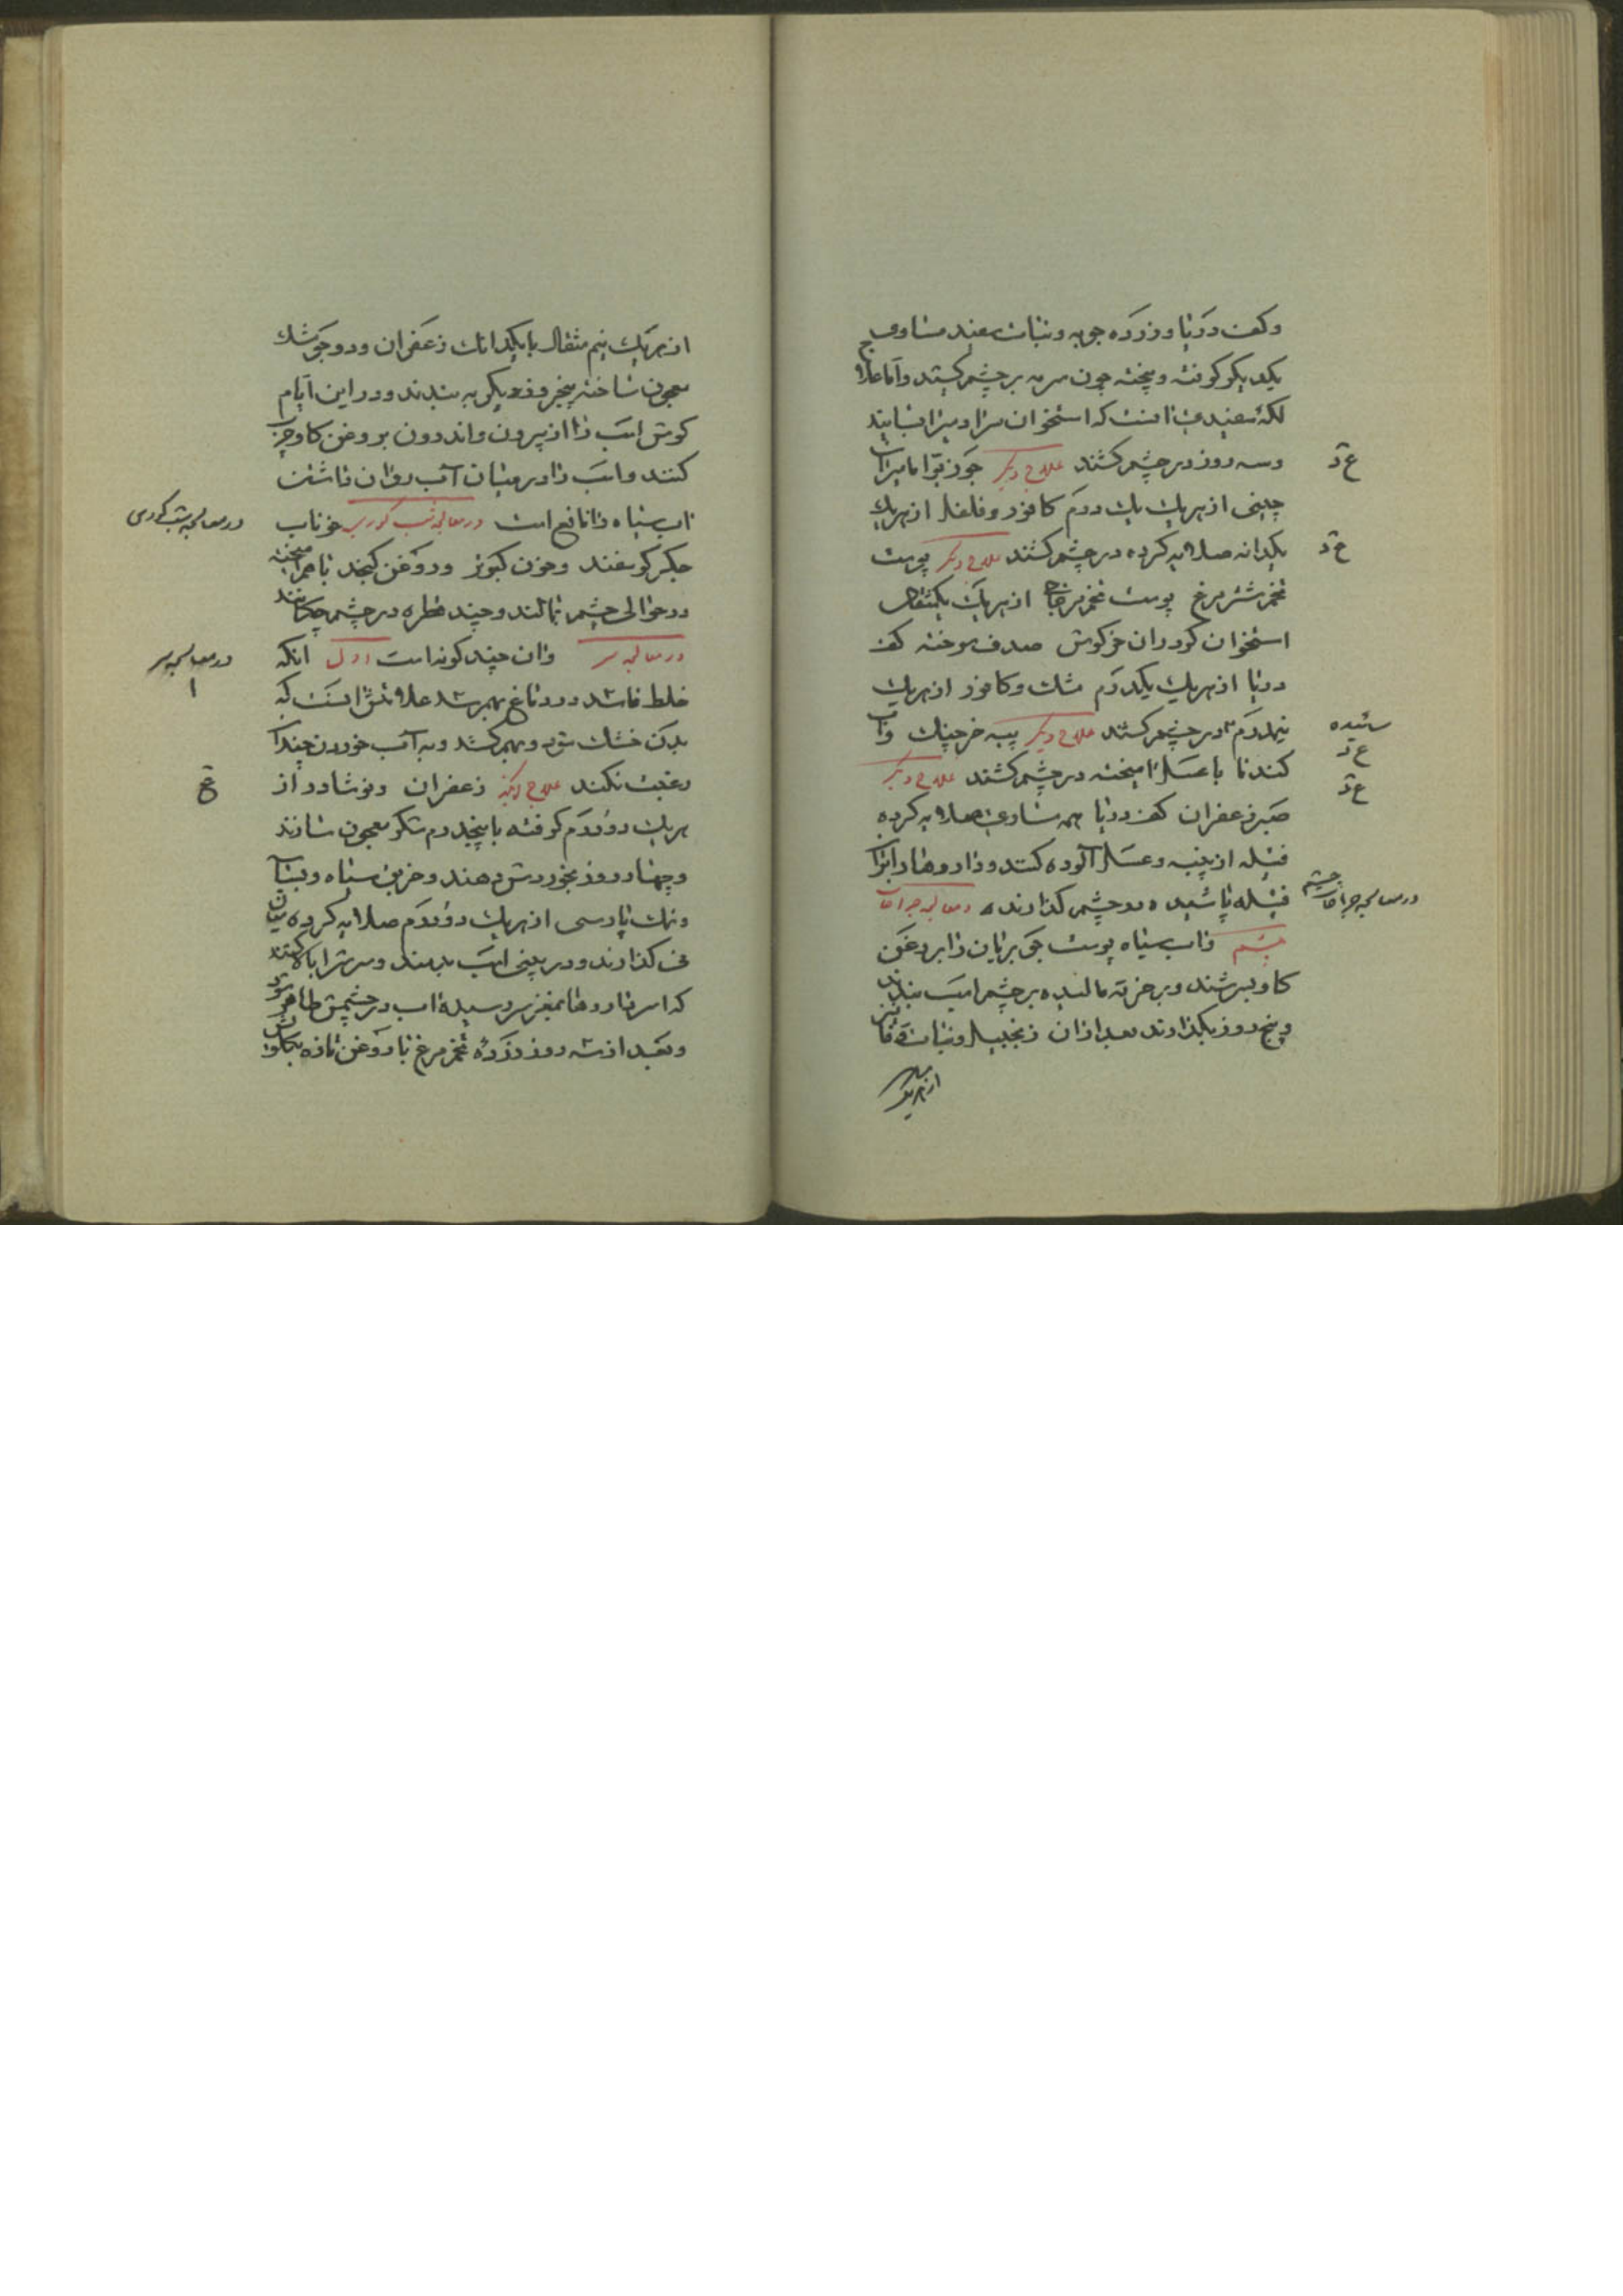 و کف دریا و زرده جوبه و نبات سفید مساوی
یکدیگر کوفته و بیخته چون سرمه بر چشم کشند و اما علاج
لکه سفیدی آنست که استخوان سر را بسایند
و سه روز در چشم کشند علاج دیگر جوز بوا مامیران
چینی از هریك یك درم کافور و فلفل از هریك
یکدانه صلایه کرده در چشم کشند علاج دیگر پوست
تخم شترمرغ پوست تخم مرغ خاکی از هریك یکمثقال
استخوان خرکوش صدف سوخته کف
دریا از هریك یکدرم مشك و کافور از هریك
نیمدرم در چشم کشند علاج دیگر پیه خرچنك و آب
کندنا با عسل امیخته در چشم کشند علاج دیگر
صبر زعفران کف دریا همه مساوی صلایه کرده
فتیله از پنبه و عسل آلوده کنند و داروها را بران
فتیله پاشیده در چشم کذارند در معالجه جراحات
چشم و آب سیاه پوست جو بریان را بروغن
کاو بسرشند و بر خرقه مالیده بر چشم اسب بندند
و پنج روز بکذارند بعد ازان زنجبیل و نبات و
ع د
ع د
سائیده
ع د
ع د
در معالجه جراحات چشم
از هریك
از هریك نیم مثقال با یکدانك زعفران و دو جو مشك
معجون ساخته پنج روز دیکر به بندند و در این ایام
کوش اسب را از بیرون و اندرون بروغن کاو چرب
کنند و اسب را در میان آب روان داشتن
آب سیاه را نافع است در معالجه شب کوری خوناب
جکر کوسفند و خون کبوتر و روغن کنجد با هم امیخته
در حوالی چشم بمالند و چند قطره در چشم چکانند
در معالجه سر و ان چند کونه است اول انکه
خلط فاسد در دماغ بهم رسد علامتش انست که
بدن خشك شود و بهم کشد و به آب خوردن چندان
رغبت نکند علاج زعفران و نوشادر از
هریك دو درم کوفته با پنجدرم شکر معجون سازند
و چهار روز بخوردش دهند و خربق سیاه و
و نمك پارسی از هریك دو درم صلایه کرده میان
نی کذارند و در بینی اسب بدمند و سرش را نکاه کنند
که اثر داروها بمغز سر رسیده اب در چشمش ظاهر شود
و بعد از سه روز زرده تخم مرغ با روغن تازه بکلویش
در معالجه شب کوری
در معالجه سر
۱
ع